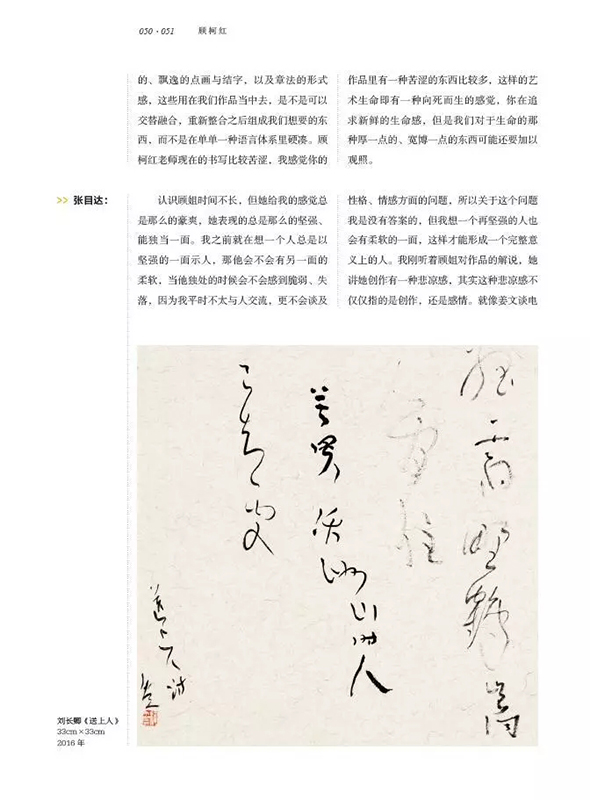 050·051 顾柯红
的、飘逸的点画与结字，以及章法的形式
感，这些用在我们作品当中去，是不是可以
交替融合，重新整合之后组成我们想要的东
西，而不是在单单一种语言体系里硬凑。顾
柯红老师现在的书写比较苦涩，我感觉你的
作品里有一种苦涩的东西比较多，这样的艺
术生命即有一种向死而生的感觉，你在追
求新鲜的生命感，但是我们对于生命的那
种厚一点的、宽博一点的东西可能还要加以
观照。
>> 张目达：
认识顾姐时间不长，但她给我的感觉总
是那么的豪爽，她表现的总是那么的坚强、
能独当一面。我之前就在想一个人总是以
坚强的一面示人，那他会不会有另一面的
柔软，当他独处的时候会不会感到脆弱、失
落，因为我平时不太与人交流，更不会谈及
性格、情感方面的问题，所以关于这个问题
我是没有答案的，但我想一个再坚强的人也
会有柔软的一面，这样才能形成一个完整意
义上的人。我刚听着顾姐对作品的解说，她
讲她创作有一种悲凉感，其实这种悲凉感不
仅仅指的是创作，还是感情。就像姜文谈电
孤云野鹤岂向
间住
莫买沃洲山时人
已知处
送上人诗
刘长卿《送上人》
33cm×33cm
2016 年